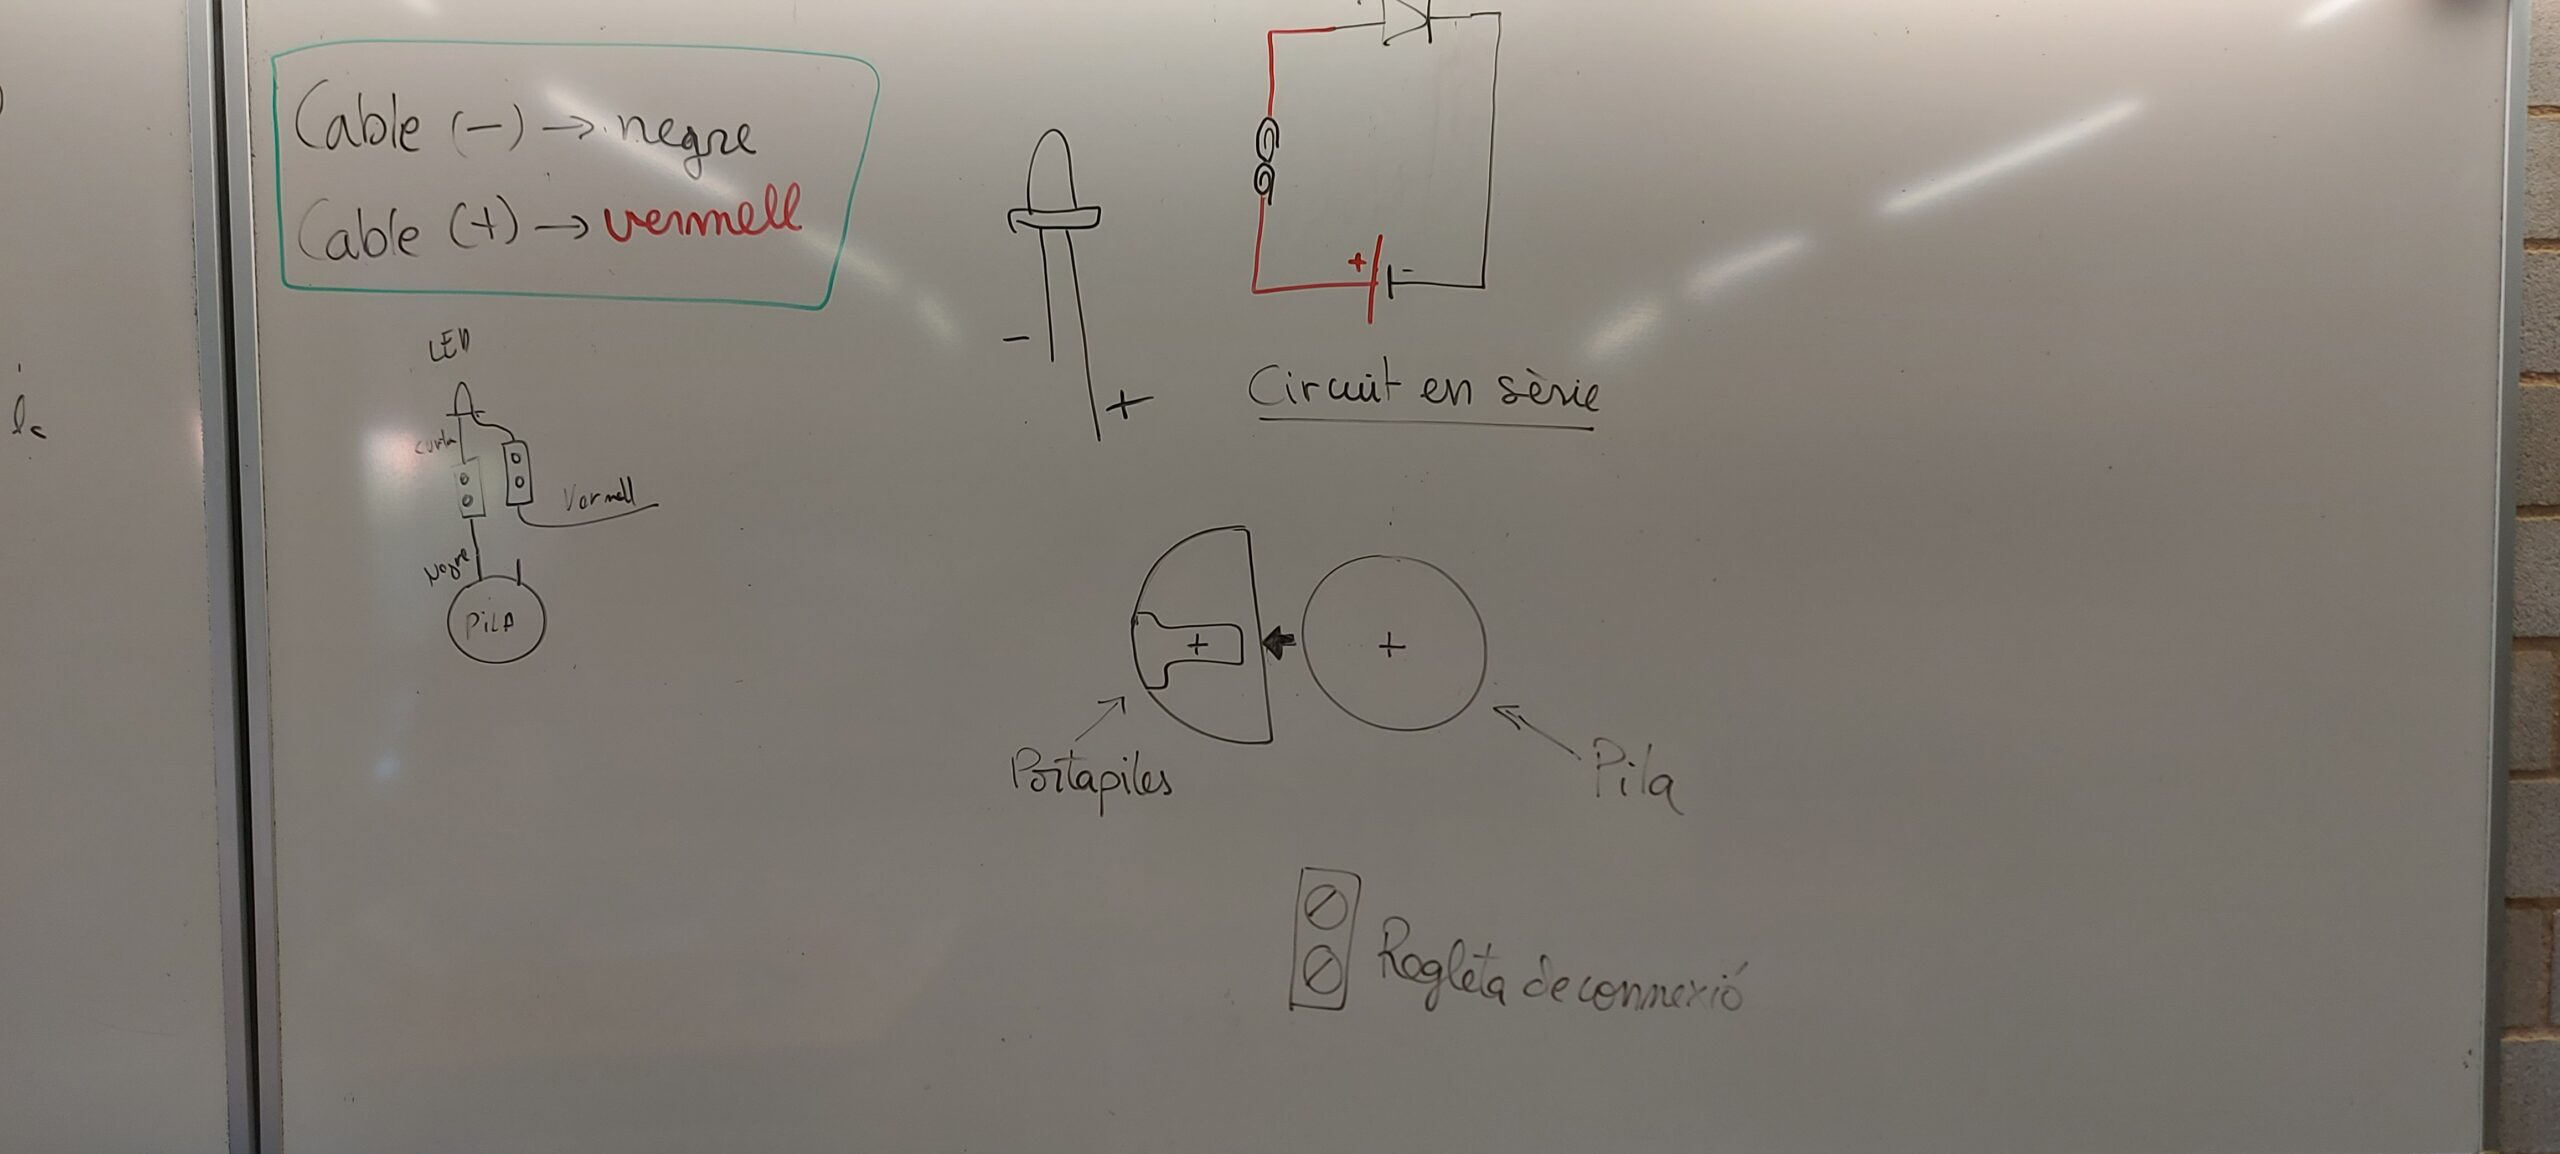 Cable (-) → negre
Cable (+) → vermell
LED
curta
Vermell
Negre
PILA
-
+
+ -
Circuit en sèrie
+
+
Portapiles
Pila
Regleta de connexió